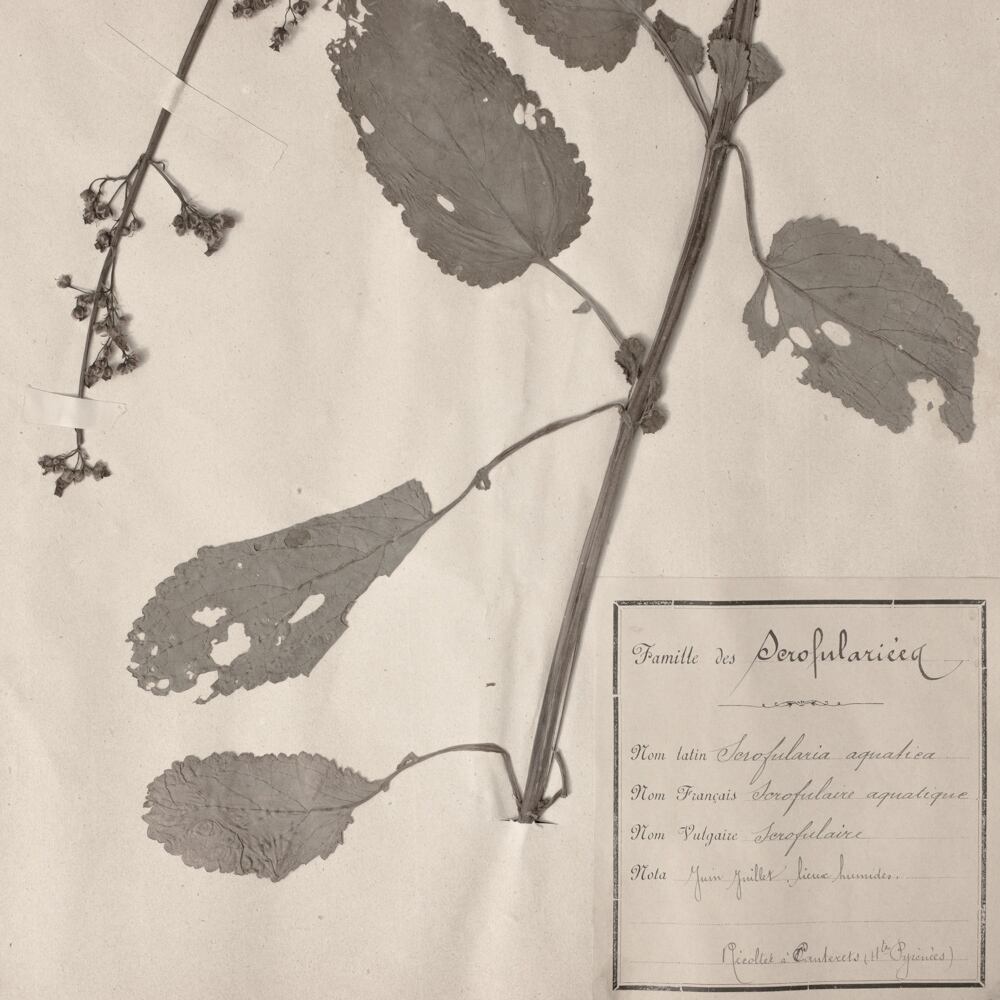 Famille des Scrofulariées
Nom latin Scrofularia aquatica
Nom Français Scrofulaire aquatique
Nom Vulgaire Scrofulaire
Nota Juin Juillet, lieux humides.
Récoltée à Cauterets (Htes Pyrénées)